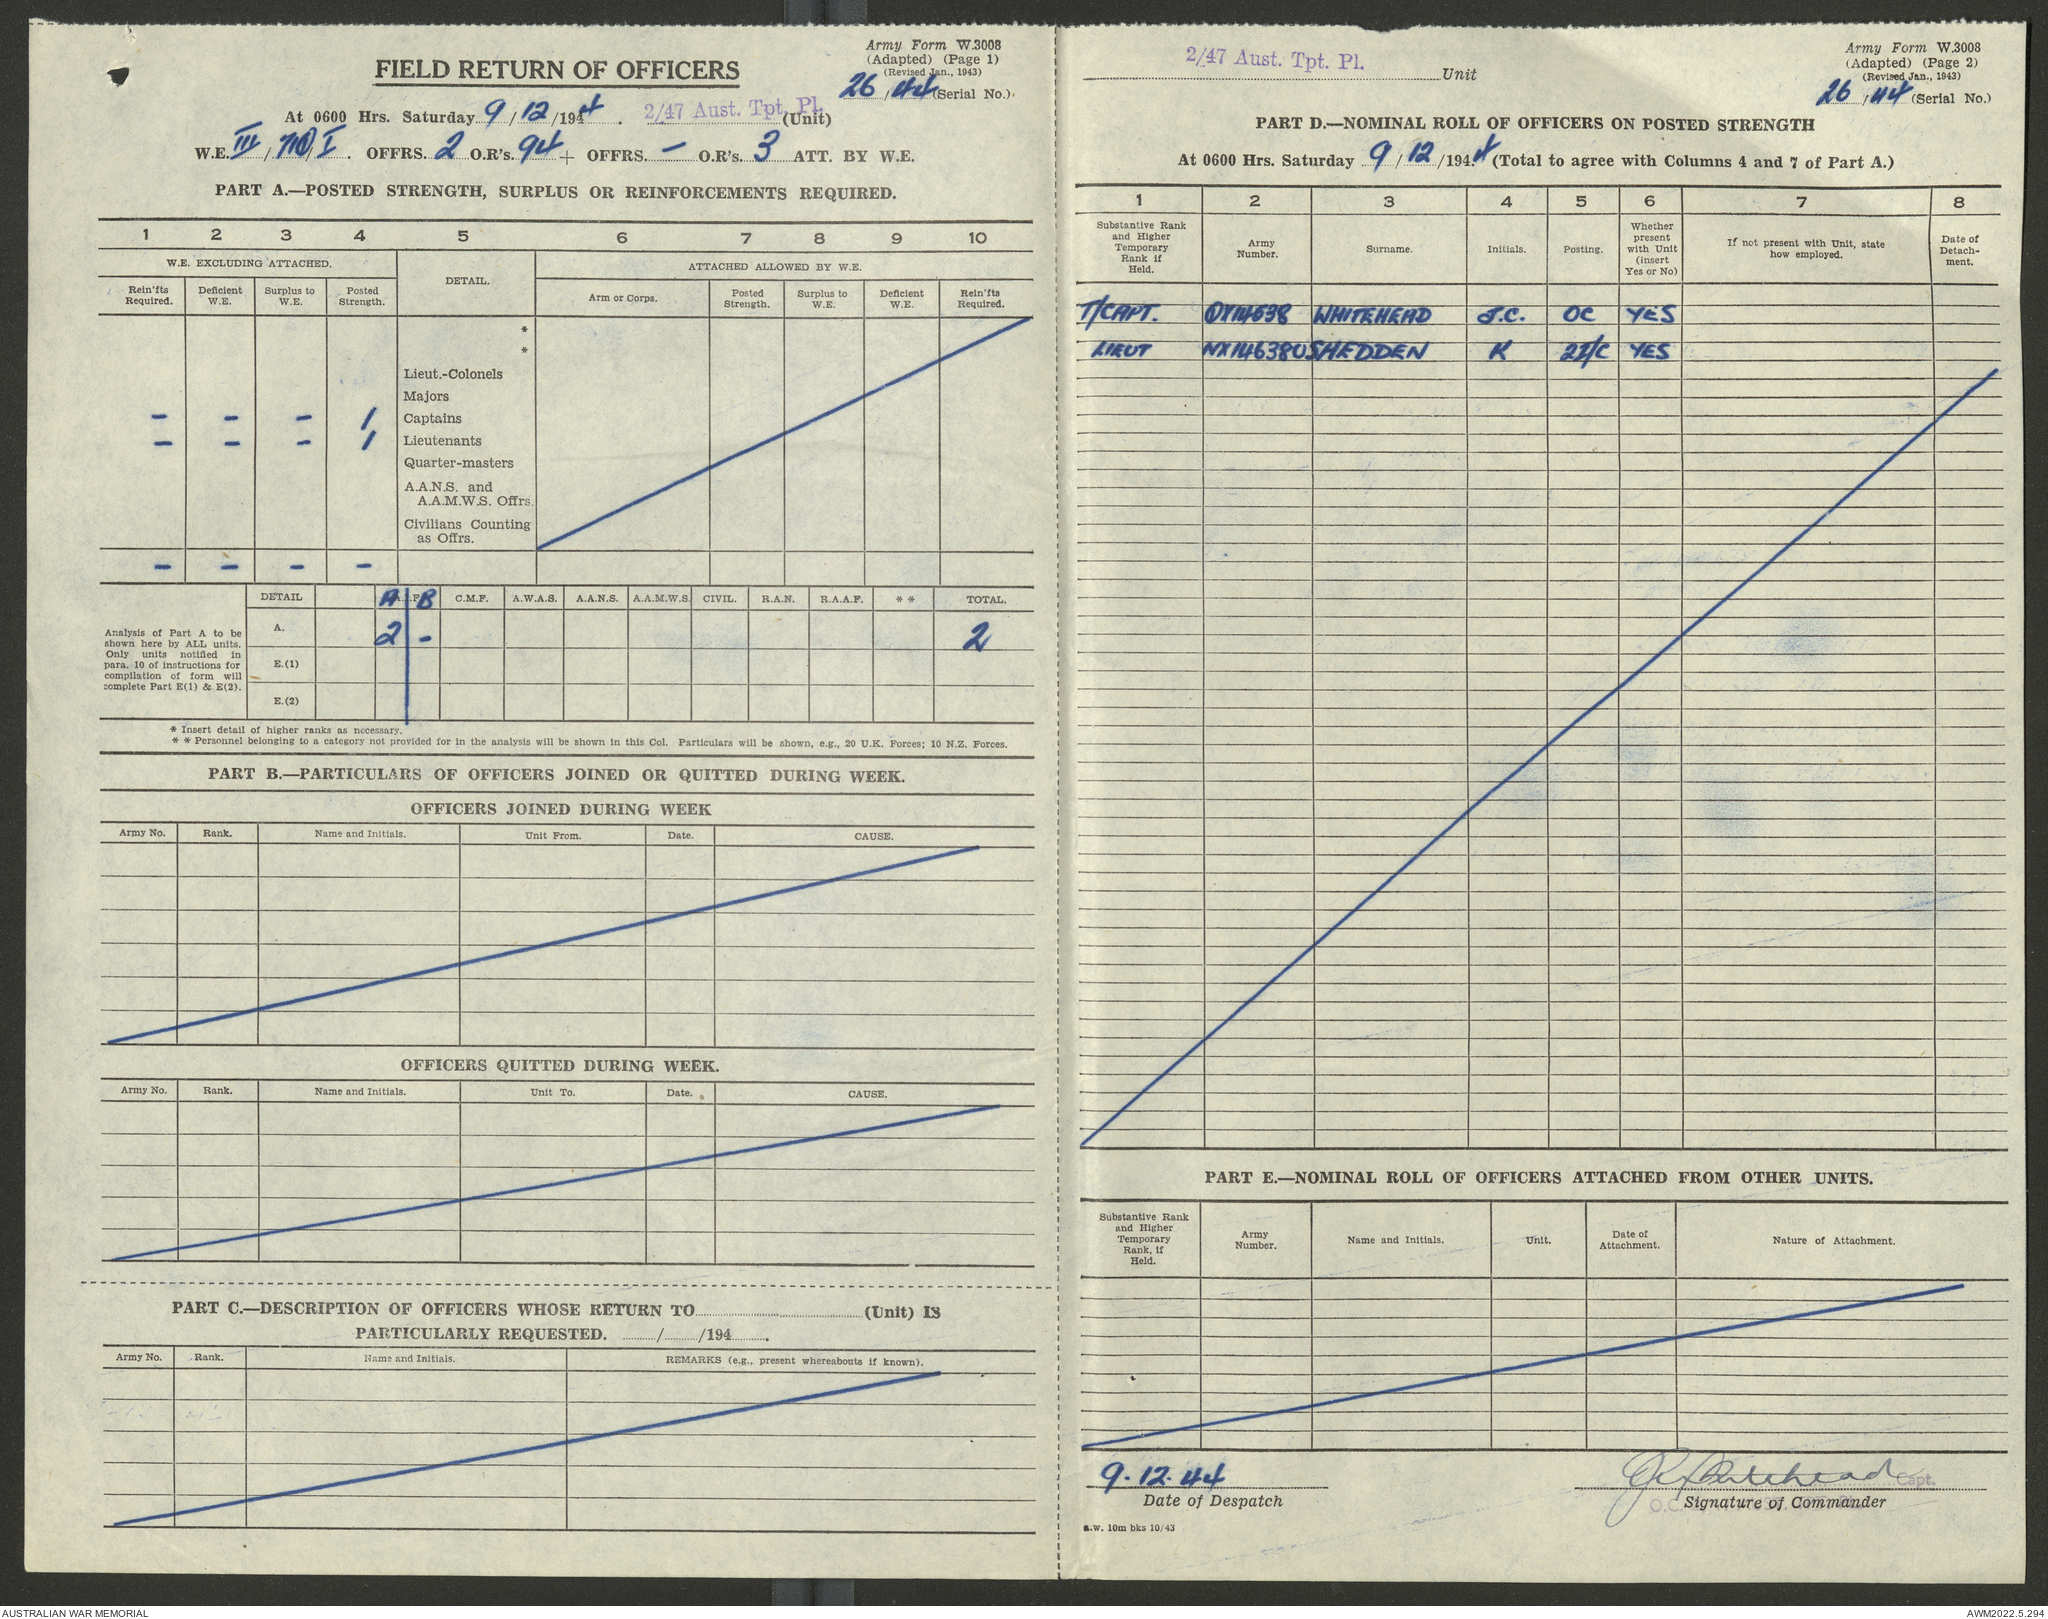 Army Form W.3008
(Adapted) (Page 1)
(Revised Jan., 1943)
26/44 (Serial No.)
FIELD RETURN OF OFFICERS
At 0600 Hrs. Saturday 9/12/1944. 2/47 Aust. Tpt. Pl. (Unit)
W.E. III / / I. OFFRS. 2 O.R's. 94 + OFFRS. - O.R's. 3 ATT. BY W.E.
PART A.—POSTED STRENGTH, SURPLUS OR REINFORCEMENTS REQUIRED.
1 2 3 4 5 6 7 8 9 10
W.E. EXCLUDING ATTACHED. DETAIL. ATTACHED ALLOWED BY W.E.
Rein'fts Required. Deficient W.E. Surplus to W.E. Posted Strength. Arm or Corps. Posted Strength. Surplus to W.E. Deficient W.E. Rein'fts Required.
*
*
Lieut.-Colonels
Majors
- - - 1 Captains
- - - 1 Lieutenants
Quarter-masters
A.A.N.S. and
A.A.M.W.S. Offrs.
Civilians Counting
as Offrs.
- - - -
DETAIL A A.I.F. B C.M.F. A.W.A.S. A.A.N.S. A.A.M.W.S. CIVIL. R.A.N. R.A.A.F. * * TOTAL.
Analysis of Part A to be
shown here by ALL units.
Only units notified in
para. 10 of instructions for
compilation of form will
complete Part E(1) & E(2).
A. 2 - 2
E.(1)
E.(2)
* Insert detail of higher ranks as necessary.
* * Personnel belonging to a category not provided for in the analysis will be shown in this Col. Particulars will be shown, e.g., 20 U.K. Forces; 10 N.Z. Forces.
PART B.—PARTICULARS OF OFFICERS JOINED OR QUITTED DURING WEEK.
OFFICERS JOINED DURING WEEK
Army No. Rank. Name and Initials. Unit From. Date. CAUSE.
OFFICERS QUITTED DURING WEEK.
Army No. Rank. Name and Initials. Unit To. Date. CAUSE.
PART C.—DESCRIPTION OF OFFICERS WHOSE RETURN TO (Unit) IS
PARTICULARLY REQUESTED. / /194 .
Army No. Rank. Name and Initials. REMARKS (e.g., present whereabouts if known).
2/47 Aust. Tpt. Pl. Unit
Army Form W.3008
(Adapted) (Page 2)
(Revised Jan., 1943)
26/44 (Serial No.)
PART D.—NOMINAL ROLL OF OFFICERS ON POSTED STRENGTH
At 0600 Hrs. Saturday 9/12/1944 (Total to agree with Columns 4 and 7 of Part A.)
1 2 3 4 5 6 7 8
Substantive Rank and Higher Temporary Rank if Held. Army Number. Surname. Initials. Posting. Whether present with Unit (insert Yes or No) If not present with Unit, state how employed. Date of Detach-ment.
T/CAPT. WHITEHEAD J.C. OC YES
LIEUT NX146380 SHEDDEN K 2I/C YES
PART E.—NOMINAL ROLL OF OFFICERS ATTACHED FROM OTHER UNITS.
Substantive Rank and Higher Temporary Rank, if Held. Army Number. Name and Initials. Unit. Date of Attachment. Nature of Attachment.
9.12.44
Date of Despatch
JC Whitehead Capt.
Signature of Commander
a.w. 10m bks 10/43
AUSTRALIAN WAR MEMORIAL
AWM2022.5.294